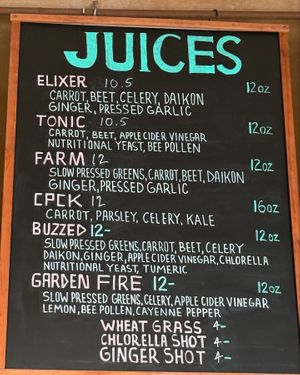 JUICES
ELIXER 10.5 12oz
CARROT, BEET, CELERY, DAIKON
GINGER, PRESSED GARLIC
TONIC 10.5 12oz
CARROT, BEET, APPLE CIDER VINEGAR
NUTRITIONAL YEAST, BEE POLLEN
FARM 12 12oz
SLOW PRESSED GREENS, CARROT, BEET, DAIKON
GINGER, PRESSED GARLIC
CPCK 12 16oz
CARROT, PARSLEY, CELERY, KALE
BUZZED 12- 12oz
SLOW PRESSED GREENS, CARROT, BEET, CELERY
DAIKON, GINGER, APPLE CIDER VINEGAR, CHLORELLA
NUTRITIONAL YEAST, TUMERIC
GARDEN FIRE 12- 12oz
SLOW PRESSED GREENS, CELERY, APPLE CIDER VINEGAR
LEMON, BEE POLLEN, CAYENNE PEPPER
WHEAT GRASS 4-
CHLORELLA SHOT 4-
GINGER SHOT 4-